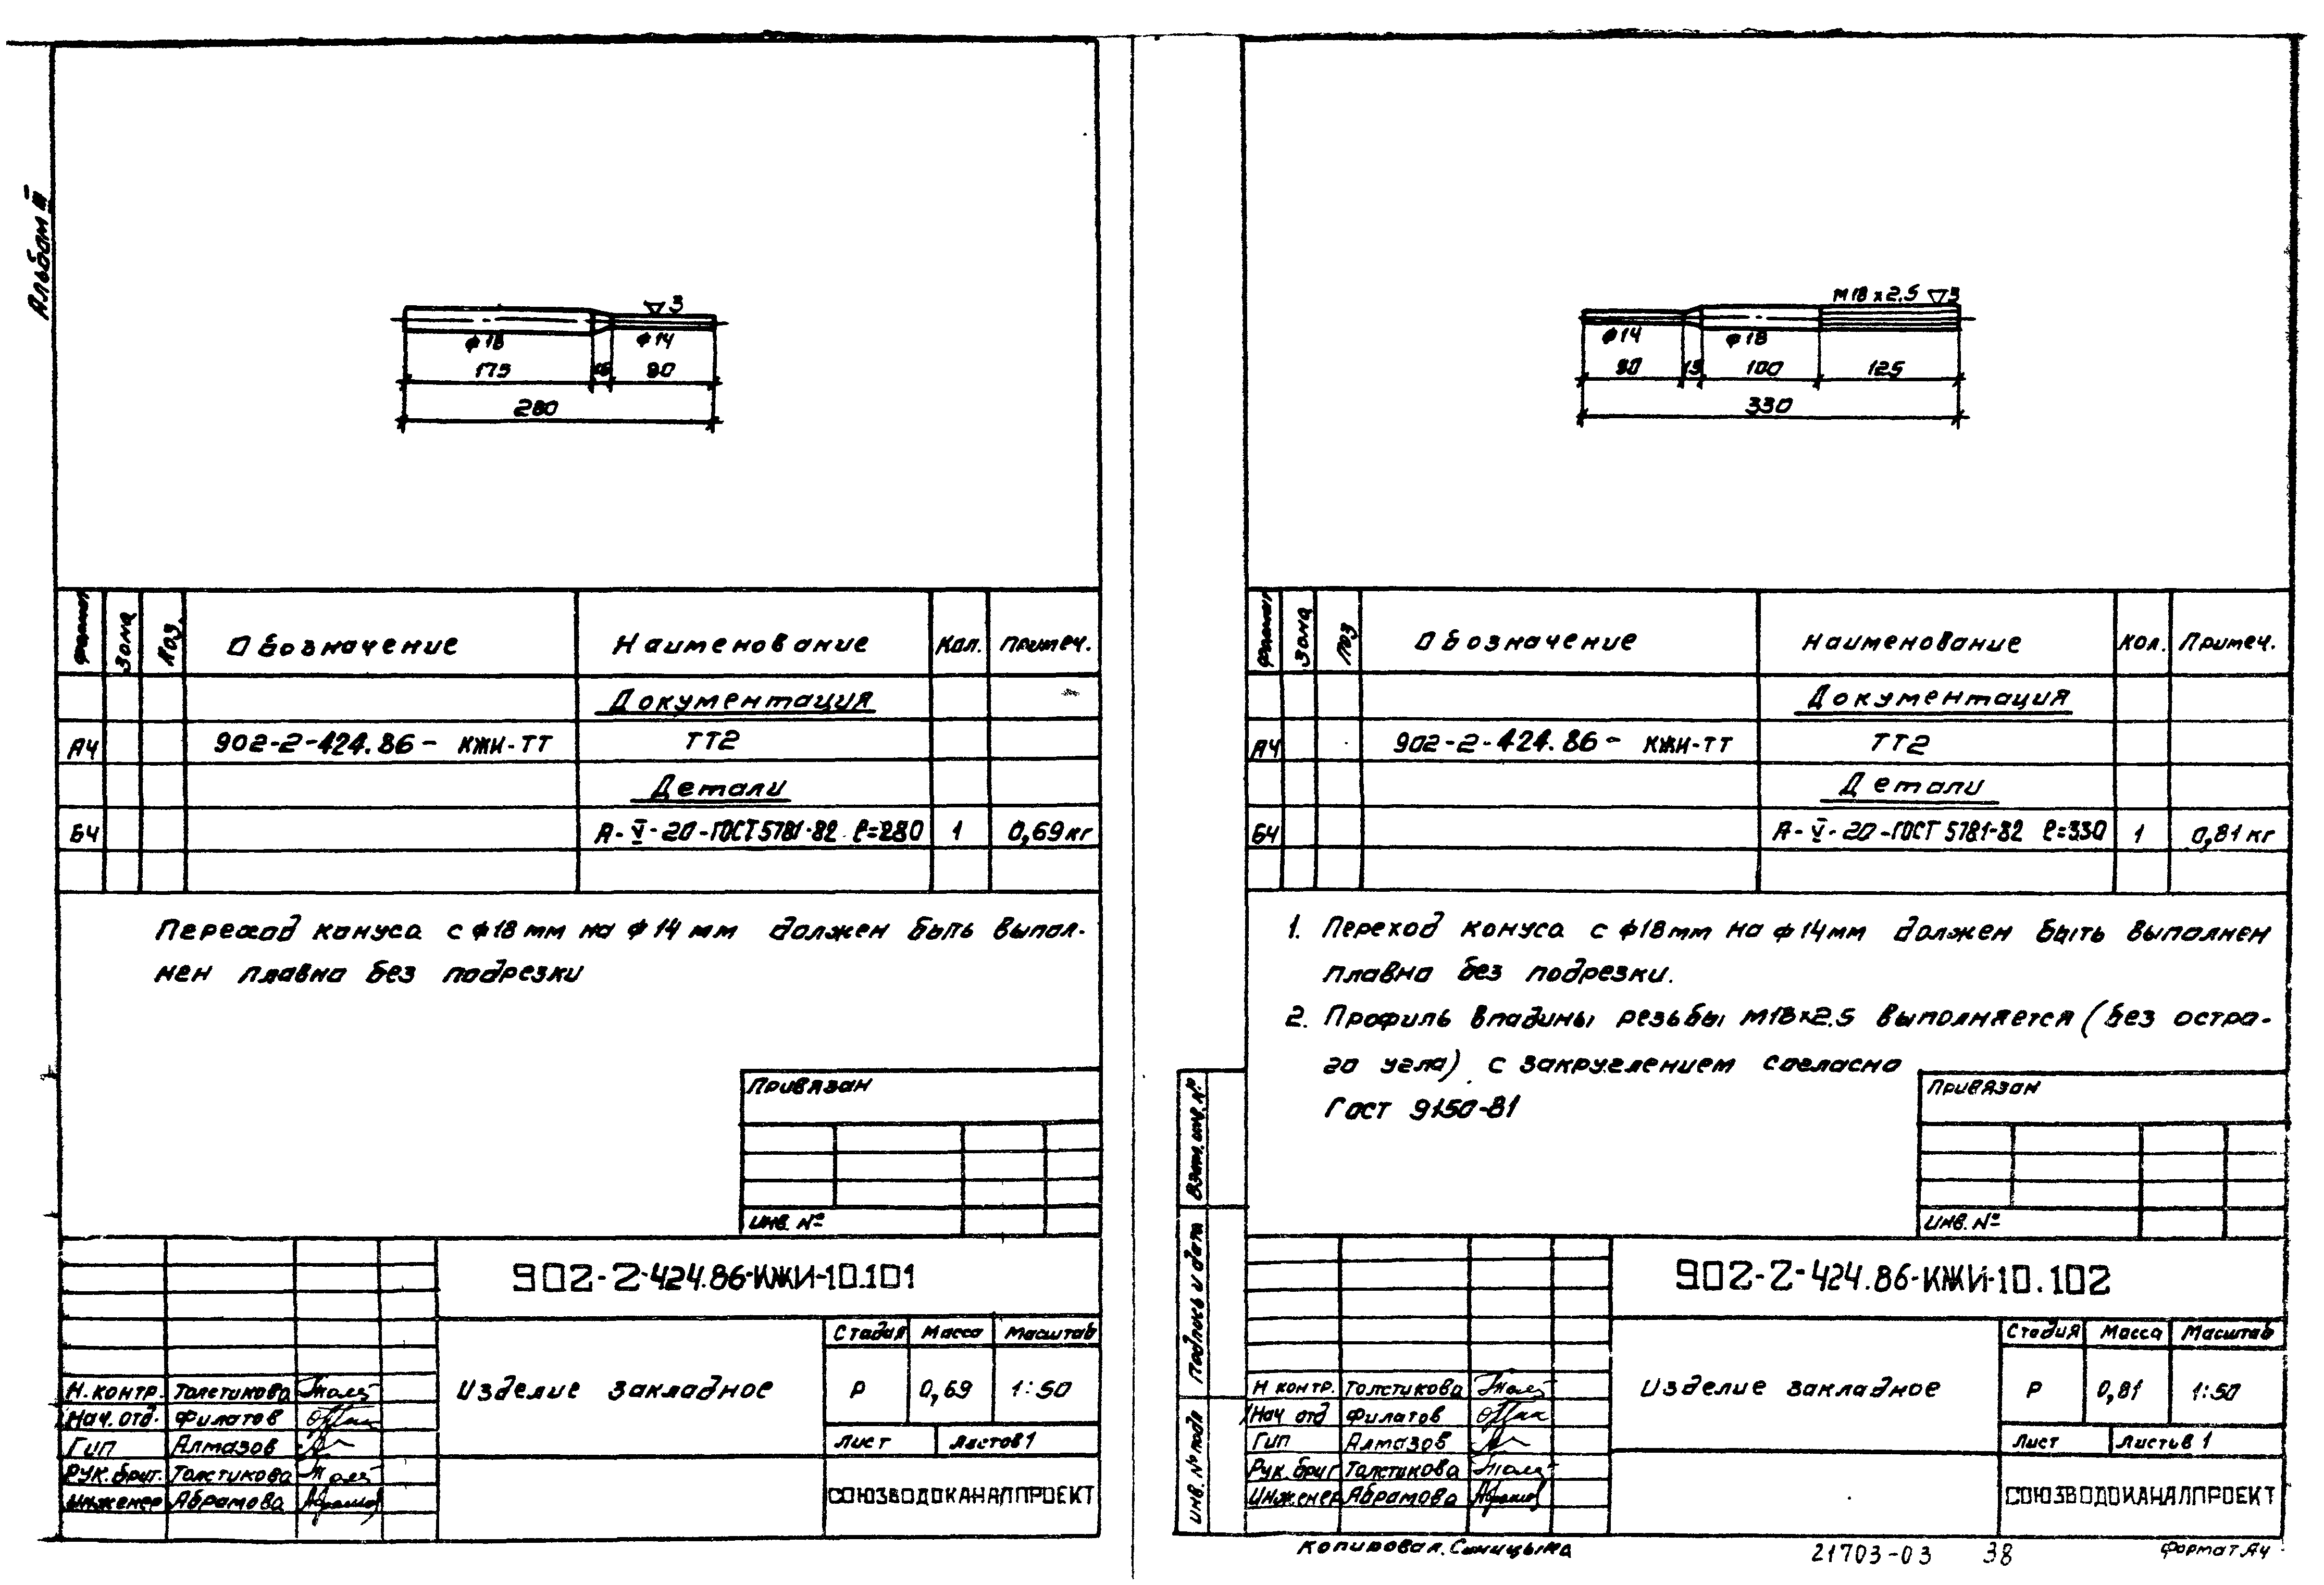 Альбом III
▽3
ф18
ф14
175
15
90
280
Формат Зона Поз. Обозначение Наименование Кол. Примеч.
Документация
А4 902-2-424.86- КЖИ-ТТ ТТ2
Детали
Б4 А-V-20-ГОСТ 5781-82 ℓ=280 1 0,69кг
Переход конуса с ф18мм на ф14мм должен быть выпол-
нен плавно без подрезки
Привязан
Инв. №
902-2-424.86-КЖИ-10.101
Стадия Масса Масштаб
Изделие закладное
Р 0,69 1:50
Лист Листов 1
СОЮЗВОДОКАНАЛПРОЕКТ
Н.контр. Толстикова
Нач.отд. Филатов
Гип Алмазов
Рук.бриг. Толстикова
Инженер Абрамова
М18х2.5 ▽3
ф14
ф18
90
15
100
125
330
Формат Зона Поз Обозначение Наименование Кол. Примеч.
Документация
А4 902-2-424.86- КЖИ-ТТ ТТ2
Детали
Б4 А-V-20-ГОСТ 5781-82 ℓ=330 1 0,81кг
1. Переход конуса с ф18мм на ф14мм должен быть выполнен
плавно без подрезки.
2. Профиль впадины резьбы М18х2.5 выполняется (без остро-
го угла) с закруглением согласно
Гост 9150-81
Привязан
Инв. №
Взам. инв. №
Подпись и дата
Инв. № подл
902-2-424.86-КЖИ-10.102
Стадия Масса Масштаб
Изделие закладное
Р 0,81 1:50
Лист Листов 1
СОЮЗВОДОКАНАЛПРОЕКТ
Н контр. Толстикова
Нач отд Филатов
Гип Алмазов
Рук.бриг Толстикова
Инженер Абрамова
Копировал. Синицына
21703-03 38
Формат А4